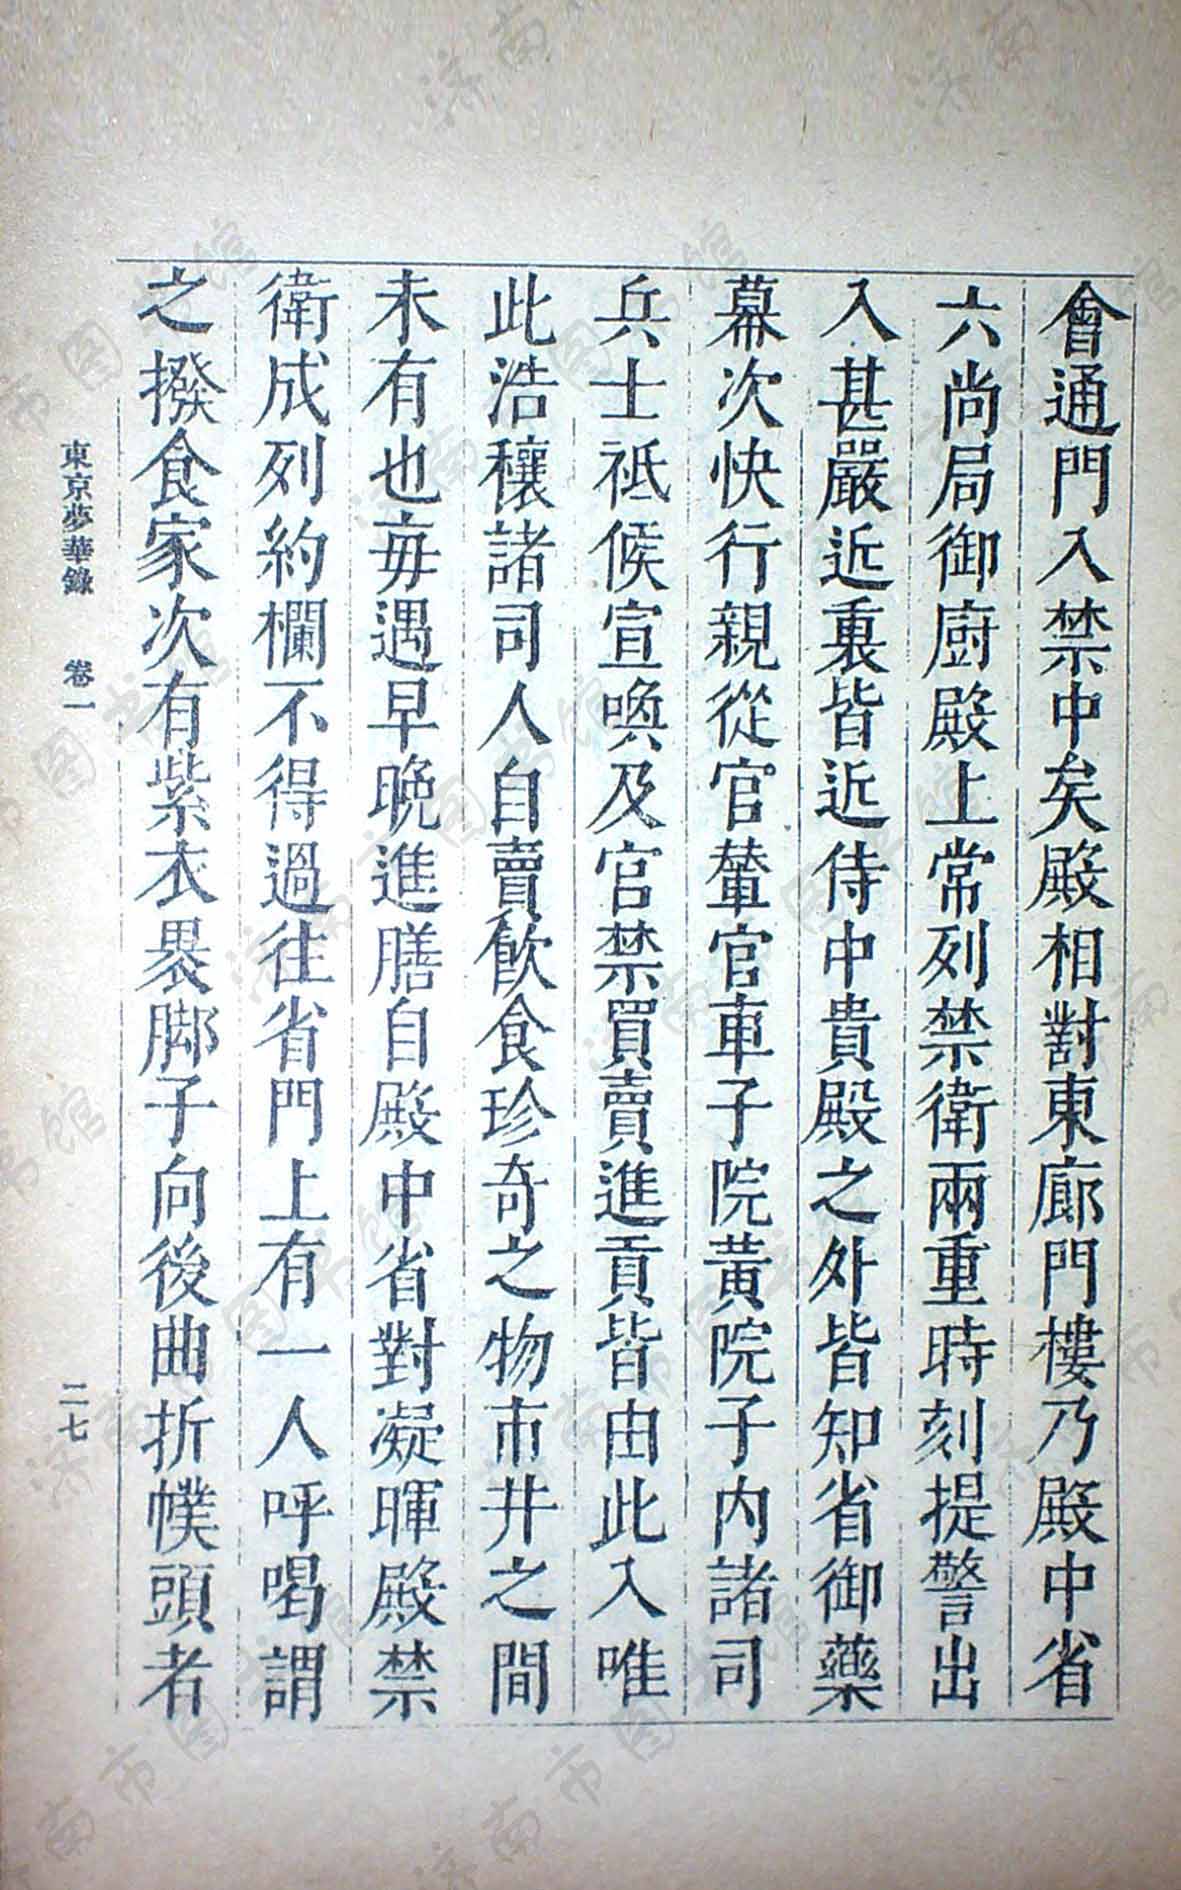 會通門入禁中矣殿相對東廊門樓乃殿中省
六尚局御廚殿上常列禁衛兩重時刻提警出
入甚嚴近裏皆近侍中貴殿之外皆知省御藥
幕次快行親從官輦官車子院黃院子內諸司
兵士祗候宣喚及宮禁買賣進貢皆由此入唯
此浩穰諸司人自賣飲食珍奇之物市井之間
未有也每遇早晚進膳自殿中省對凝暉殿禁
衛成列約欄不得過往省門上有一人呼喝謂
之撥食家次有紫衣裹脚子向後曲折幞頭者
東京夢華錄 卷一 二七
济南市图书馆